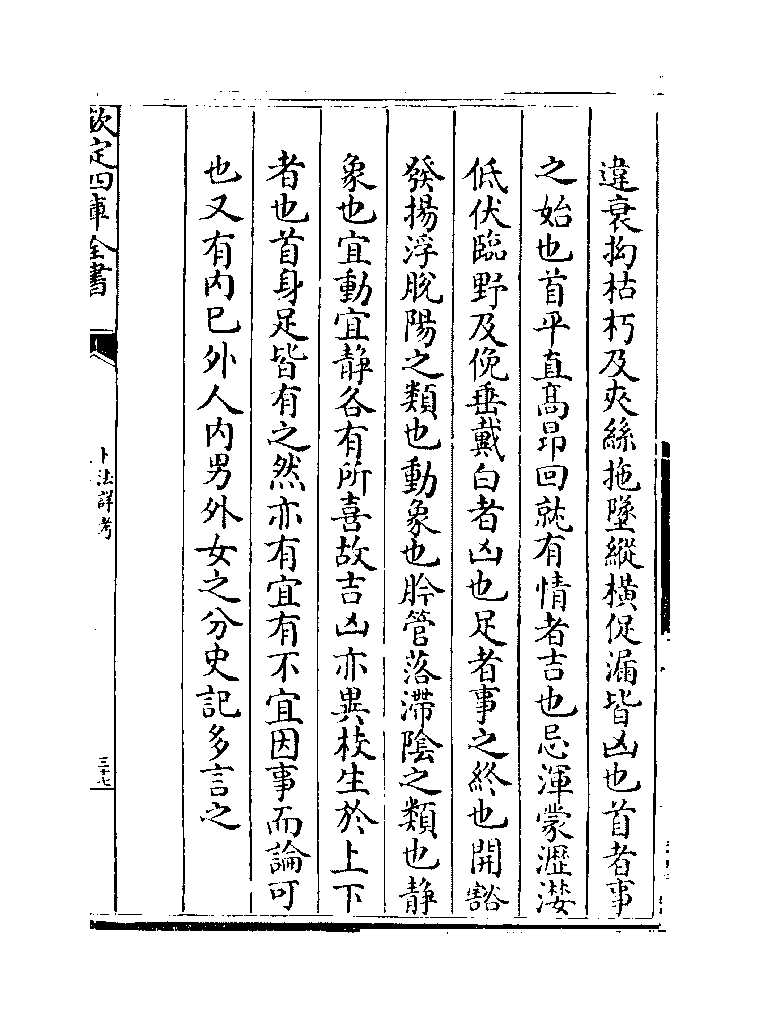 違衰拗枯朽及夾絲拖墜縱横促漏皆凶也首者事
之始也首平直髙昂回就有情者吉也忌渾蒙瀝漊
低伏臨野及俛垂戴白者凶也足者事之終也開豁
發揚浮脫陽之類也動象也肣管落滯陰之類也静
象也宜動宜静各有所喜故吉凶亦異枝生於上下
者也首身足皆有之然亦有宜有不宜因事而論可
也又有内已外人内男外女之分史記多言之
欽定四庫全書
卜法詳考
三十七